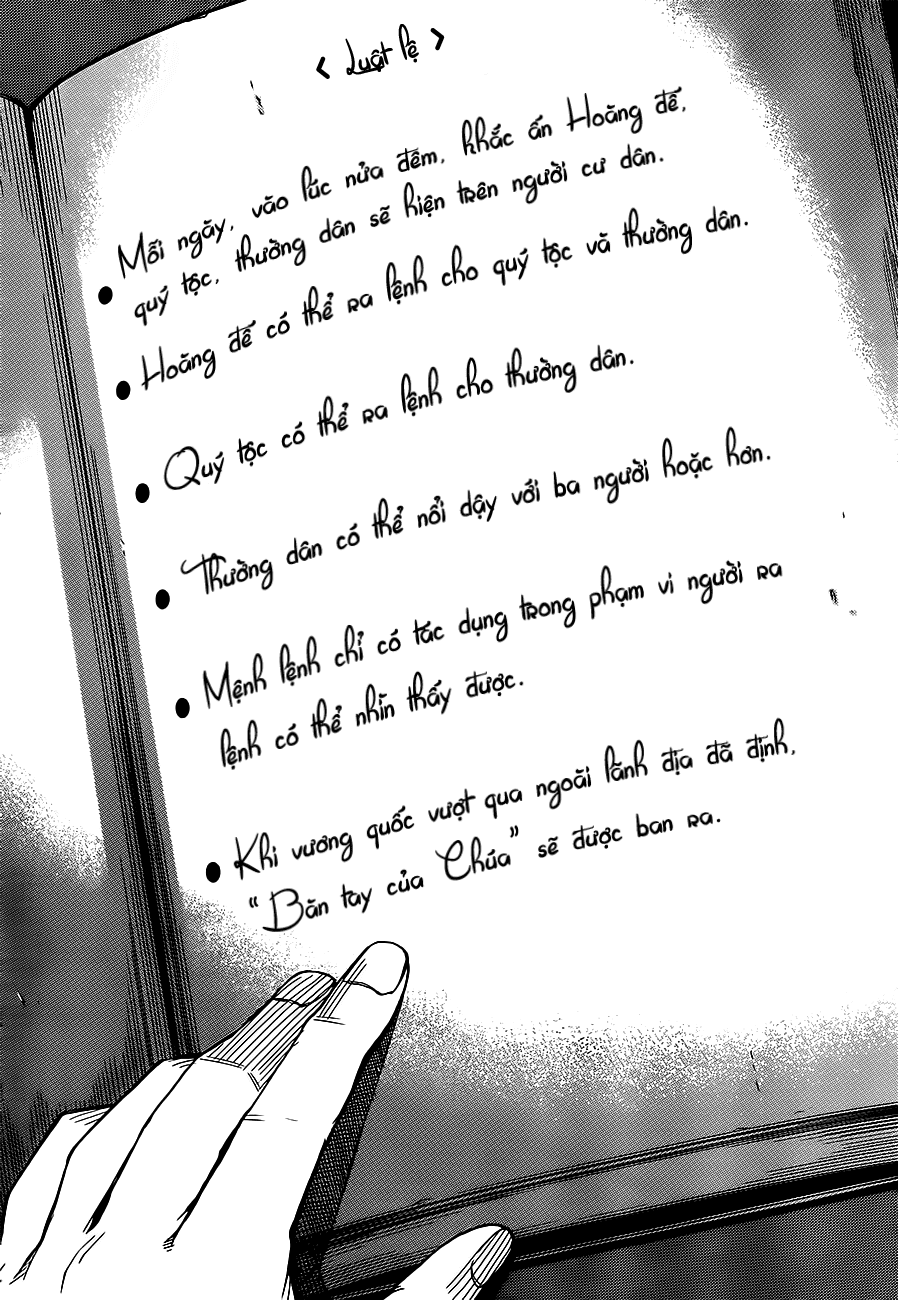 < Luật lệ >
• Mỗi ngày, vào lúc nửa đêm, khắc ấn Hoàng đế,
quý tộc, thường dân sẽ hiện trên người cư dân.
• Hoàng đế có thể ra lệnh cho quý tộc và thường dân.
• Quý tộc có thể ra lệnh cho thường dân.
• Thường dân có thể nổi dậy với ba người hoặc hơn.
• Mệnh lệnh chỉ có tác dụng trong phạm vi người ra
lệnh có thể nhìn thấy được.
• Khi vương quốc vượt qua ngoài lãnh địa đã định,
“Bàn tay của Chúa” sẽ được ban ra.